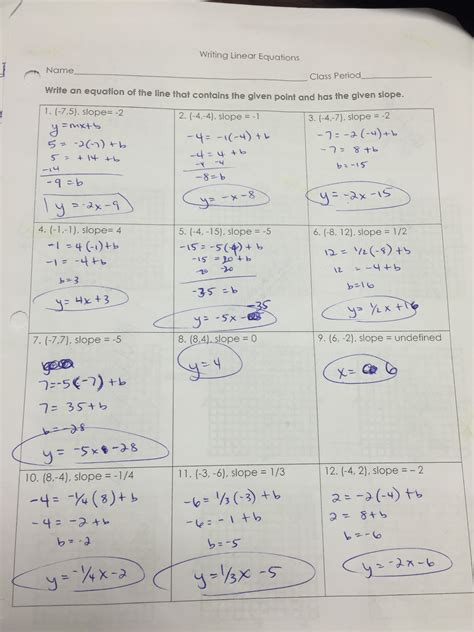 Writing Linear Equations
Name
Class Period
Write an equation of the line that contains the given point and has the given slope.
1. (-7,5), slope= -2
y=mx+b
5 = -2(-7) +b
5 = +14 +b
-14
-9 = b
y = -2x-9
2. (-4,-4), slope = -1
-4= -1(-4) +b
-4 = 4 +b
-4 -4
-8=b
y= -x-8
3. (-4,-7), slope = -2
-7=-2(-4)+b
-7= 8 +b
b=-15
y= -2x-15
4. (-1,-1), slope= 4
-1=4(-1)+b
-1 = -4+b
b=3
y= 4x+3
5. (-4, -15), slope = -5
-15=-5(-4)+b
-15 = 20+b
-20 -20
-35 =b
-35
y= -5x
6. (-8, 12), slope = 1/2
12 = 1/2(-8) +b
12 = -4+b
b=16
y= 1/2 x +16
7. (-7,7), slope = -5
7=-5(-7) +b
7= 35+b
b=-28
y= -5x-28
8. (8,4), slope = 0
y=4
9. (6, -2), slope = undefined
x= 6
10. (8,-4), slope = -1/4
-4= -1/4(8)+b
-4 = -2 +b
b=-2
y=-1/4x-2
11. (-3, -6), slope = 1/3
-6=1/3(-3)+b
-6= -1 +b
b=-5
y=1/3x-5
12. (-4, 2), slope = – 2
2= -2(-4) +b
2= 8+b
b=-6
y= -2x-6